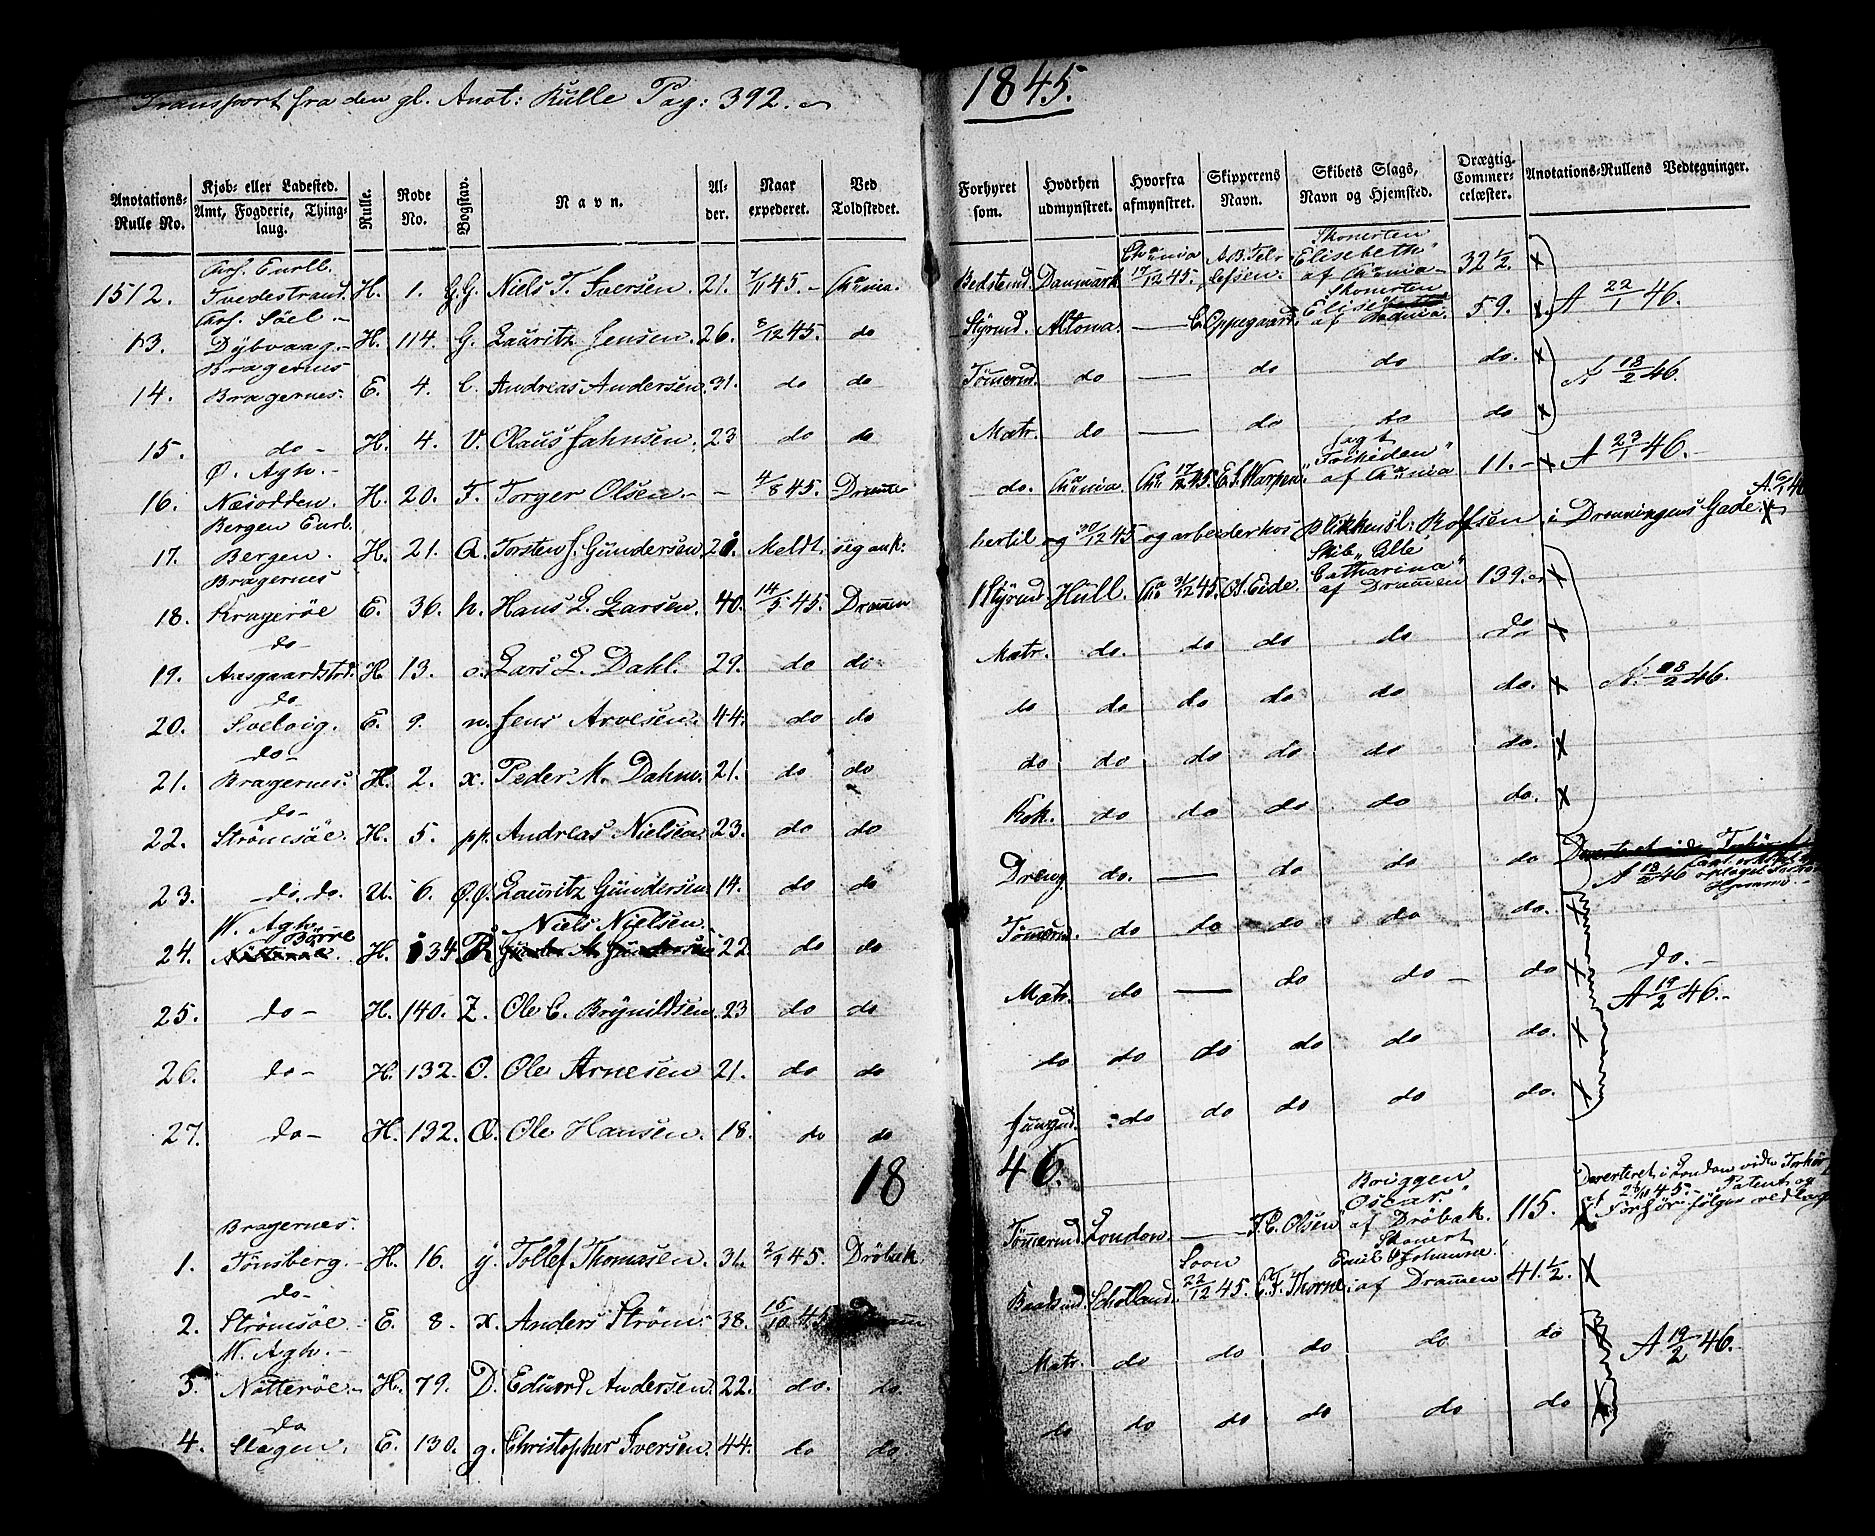 Transport fra den gl. Anot: Rulle Pag: 392.
1845.
Anotations-Rulle No. | Kjøb- eller Ladested. Amt, Fogderie, Thinglaug. | Rulle. | Rode No. | Bogstav. | Navn. | Alder. | Naar expederet. | Ved Toldstedet. | Forhyret som. | Hvorhen udmynstret. | Hvorfra afmynstret. | Skipperens Navn. | Skibets Slags, Navn og Hjemsted. | Drægtig. Commercelæster. | Anotations-Rullens Vedtegninger.
1512. | Arf. Enroll. Tvedestrand. | H. | 1. | G.G. | Niels T. Iversen. | 21. | 7/11 45. | Chania. | Bedstemd. | Danmark | Chania 17/12 45. | Skonerten Elisebeth" af Chania | 32 1/2. | x
13. | Arf. Söel. Dybvaag. | H. | 114. | G. | Lauritz Jensen. | 26. | 8/12 45. | do | Styrmd. | Altona. | — | C. Oppegaard. | Skonerten Elise af Chania. | 59. | x | A 22/1 46.
14. | Bragernes Bragernes. | E. | 4. | C. | Andreas Andersen. | 31. | do | do | Tömermd. | do | — | do | do | do. | x | A 18/2 46.
15. | do | H. | 4. | V. | Olaus Jahnsen. | 23 | do | do | Matr. | do | — | do | do | do | x
16. | Ø. Agh. Næsodden. | H. | 20. | F. | Torger Olsen. | - | 4/8 45. | Dramen | do. | Chania. | Cha 17/12 45. | Jagt af Chania | 11. | x | A 23/1 46.
17. | Bergen Enrl. Bergen. | H. | 21. | a. | Torsten J. Gündersen. | 21. | Meldt sig ank: hertil og 30/12 45 og arbeider hos Rolfsen i Dronningens Gade. | x
18. | Bragernes Kragerøe | E. | 36. | h. | Hans L. Larsen. | 40. | 14/5 45. | Dramen | 1 Styrmd. | Hull. | Cha 31/12 45. | Eide. | Skib Catharina" af Dramen | 139. | x
19. | do Aasgaardstrd. | H. | 13. | o. | Lars L. Dahl. | 29. | do | do | Matr. | do. | do | do | do | do | x
20. | do Svelvig. | E. | 9. | n. | Jens Arvesen. | 44. | do | do | do | do | do | do | do | do. | x | A. 18/2 46.
21. | do Bragernes. | H. | 2. | x. | Peder M. Dahm. | 21. | do | do | do | do | do | do | do | do. | x
22. | do Strömsöe. | H. | 5. | pp. | Andreas Nielsen. | 23. | do | do | Kok. | do | do | do | do | do. | x
23. | do. do. | U. | 6. | Ø.Ø. | Lauritz Gündersen. | 14. | do | do | Dreng | do. | — | do | do | do | A 18/2 46
24. | W. Agh. Borre | H. | 134. | R | Niels Nielsen. | 22. | do | do | Tömermd. | do | do | do | do | do. | x
25. | do | H. | 140. | Z. | Ole C. Brynildsen | 23 | do | do | Matr. | do | — | do | do | do | x | do. A 19/2 46.
26. | do | H. | 132. | O. | Ole Arnesen | 21. | do | do | do | do | do | do | do | do. | x
27. | do | H. | 132. | Ø. | Ole Hansen. | 18. | do | do | Jungmd. | do | do | do | do | do. | x
1846.
1. | Bragernes. Tönsberg. | H. | 16. | y. | Tollef Thomasen | 31. | 2/9 45. | Dröbak. | Tömermd. | London. | — | F. C. Olsen | Briggen Oscar." af Dröbak. | 115. | Deserteret i London
2. | do Strömsöe | E. | 8. | x. | Anders Ström. | 38. | 15/10 45 | Dramen | Baadsmd. | Schotland. | Soon 22/12 45. | C. F. Thorne. | Skonert Emil & Johanne. af Dramen | 41 1/2. | x
3. | W. Agh. Nötteröe | H. | 79. | D. | Eduard Andersen. | 22. | do. | do. | Matr. | do | do | do | do | do | x | A 19/2 46.
4. | do Slagen. | E. | 130. | g. | Christopher Iversen. | 44. | do | do | do | do | do | do | do | do | x